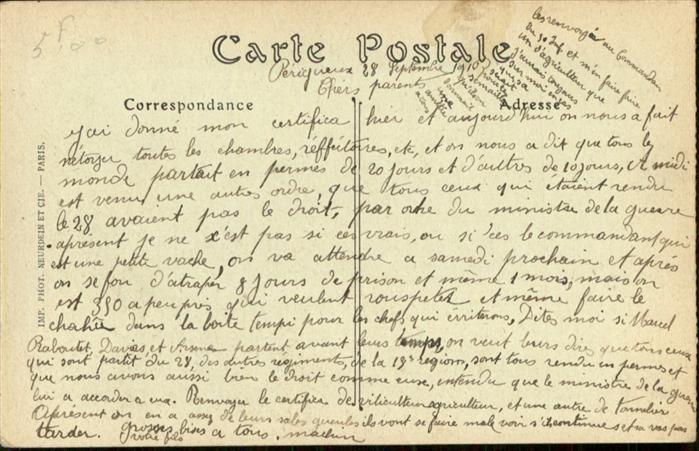 5F,00
Carte Postale
Perigueux 28 Septembre 1910
Chers parents
Correspondance
Adresse
IMP. PHOT. NEURDEIN ET CIE. — PARIS.
j'ai donné mon certifica hier et aujourd'hui on nous a fait
nétoyer toutes les chambres, réffétoires, etc, et on nous a dit que tous le
monde partait en permes de 20 jours et d'autres de 10 jours, A midi
est venu une autres ordre, que tous ceux qui étaient rendu
le 28 avaient pas le droit, par ordre du ministre de la guerre
apresent je ne s'est pas si ces vrais, ou si ces le commandant qui
est une petite vache, on va attendre a samedi prochain et après
on se fou d'atraper 8 jours de prison et même 1 mois, mais on
est 350 a peu près qui veulent rouspeter et même faire le
chahu dans la boite tempi pour les chefs qui
Dites moi si Marcel
Raboutet, Davies et partent avant leurs temps, on veut leurs dire que tous ceux
qui sont partit du 28, des autres regiments, de la 18e region, sont tous rendu en permes et
que nous avons aussi bien le droit comme euse, entendu que le ministre de la guerre
lui a accorder a eux. Renvoyer le certifica de viticulteur agriculteur, et une autre de
Apresent on en a assez de leurs sales gueules ils vont se faire male voir s'il continue set a va pas
tarder. grosses bises a tous.
votre fils
les renvoyer au Commandan
du 50 Inf et m'en faire faire
un d'agriculteur que